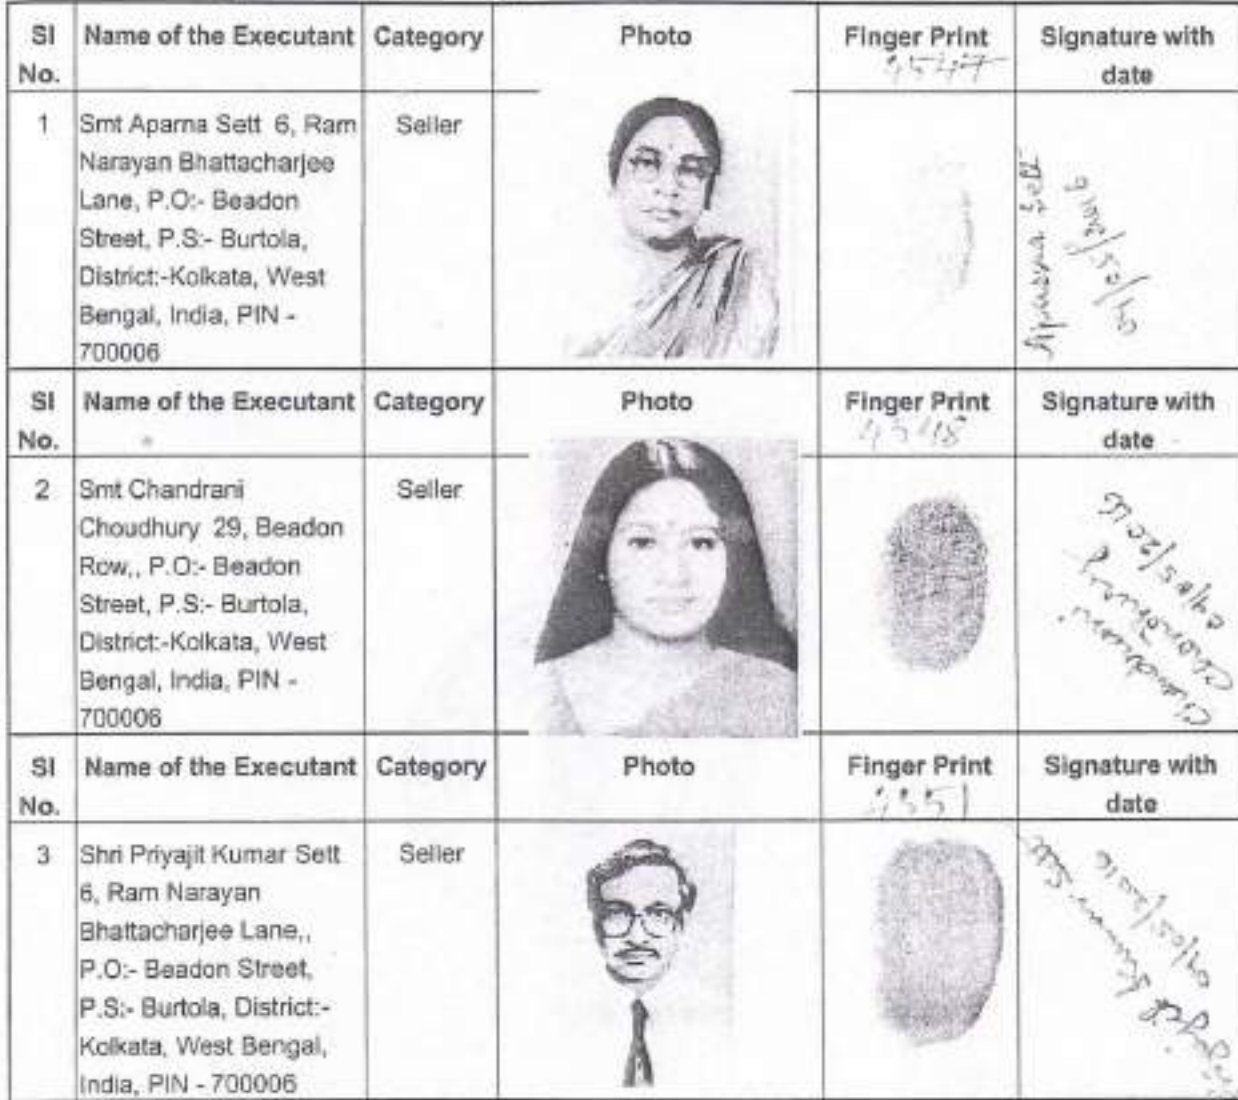 Sl No. Name of the Executant Category Photo Finger Print Signature with date
4547
1 Smt Aparna Sett 6, Ram Seller
Narayan Bhattacharjee
Lane, P.O:- Beadon
Street, P.S:- Burtola,
District:-Kolkata, West
Bengal, India, PIN -
700006
Aparna Sett
04/05/2016
Sl No. Name of the Executant Category Photo Finger Print Signature with date
4548
2 Smt Chandrani Seller
Choudhury 29, Beadon
Row,, P.O:- Beadon
Street, P.S:- Burtola,
District:-Kolkata, West
Bengal, India, PIN -
700006
Chandrani
Choudhury
04/05/2016
Sl No. Name of the Executant Category Photo Finger Print Signature with date
4551
3 Shri Priyajit Kumar Sett Seller
6, Ram Narayan
Bhattacharjee Lane,,
P.O:- Beadon Street,
P.S:- Burtola, District:-
Kolkata, West Bengal,
India, PIN - 700006
Priyajit Kumar Sett
04/05/2016